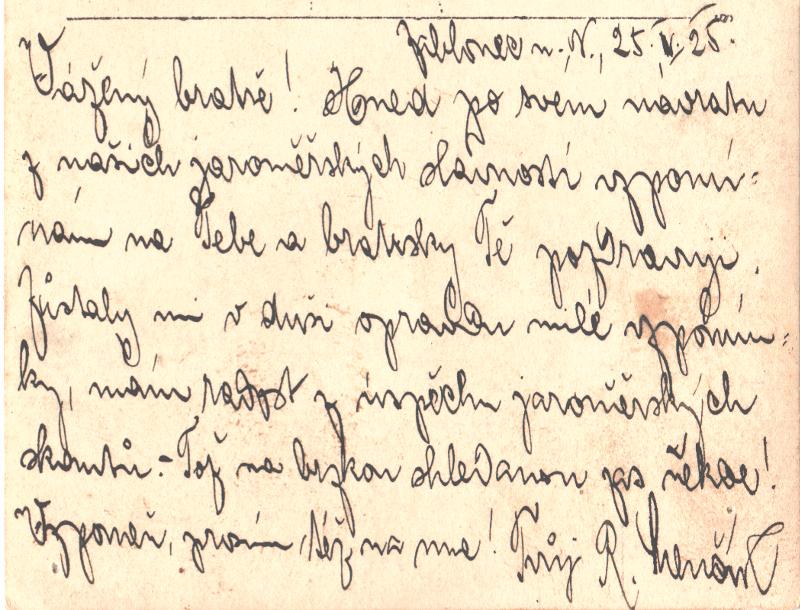 Jablonec n. N., 25. V. 25.
Vážený bratře! Hned po svém návratu
z našich jaroměřských slavností vzpomí-
nám na Tebe a bratrsky Tě pozdravuji.
Zůstaly mi v duši opravdu milé vzpomín-
ky, mám radost z úspěchu jaroměřských
skautů. - Tož na brzkou shledanou zas někde!
Vzpomeň, prosím, též na mne! Tvůj R.